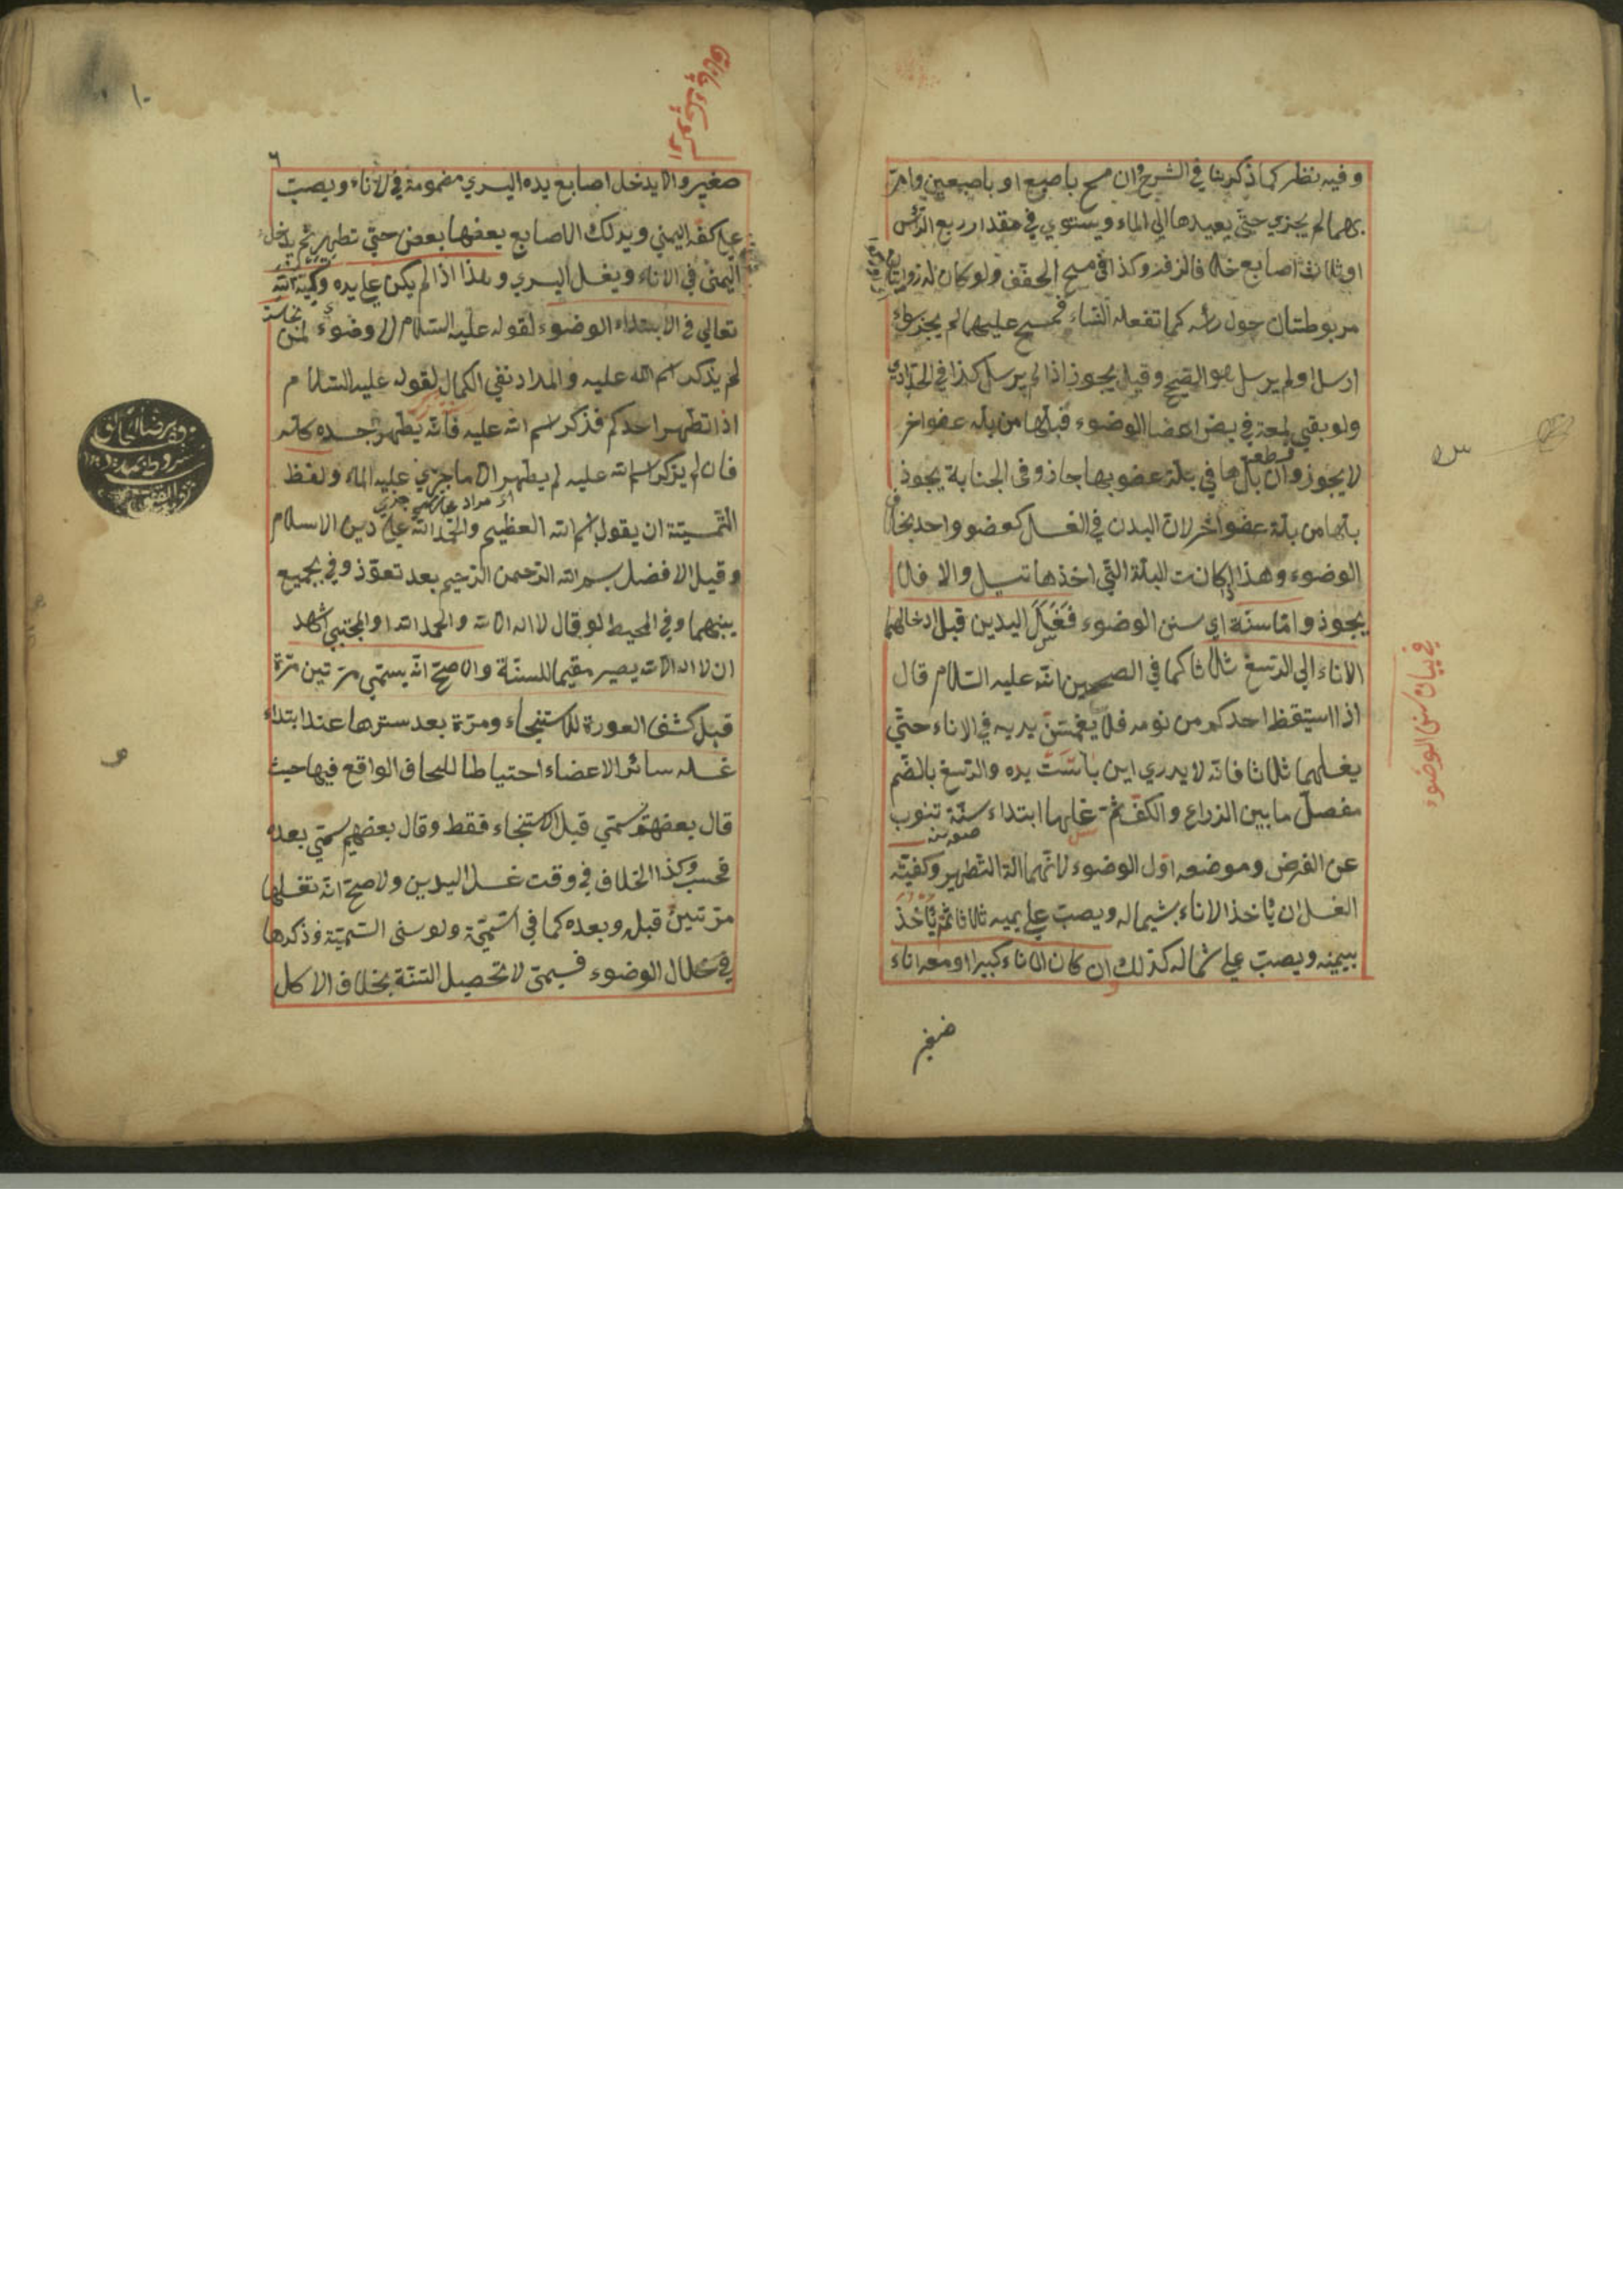 وفيه نظر كما ذكرنا في الشرح وان مسح باصبع او باصبعين وامر
بهما لم يجزي حتي يعيدها الي الماء ويستوي في مقدار ربع الرأس
او ثلاث اصابع خلافا لزفر وكذا في مسح الخفف ولو كان له زوايتان
مربوطتان حول رأسه كما تفعله النساء فمسح عليهما لم يجز سواء
ارسل اولم يرسل هو الصحيح وقيل يجوز اذا لم يرسل كذا في الحدادي
ولو بقي لمعة في بعض اعضا الوضوء فبلها من بلة عضو اخر
لا يجوز وان بلها في بلة عضو بها جاز وفي الجنابة يجوز
بلها من بلة عضو اخر لان البدن في الغسل كعضو واحد بخلاف
الوضوء وهذا اذا كانت البلة التي اخذها تسيل والا فلا
يجوز واما سنة اي سنن الوضوء فغسل اليدين قبل ادخالهما
الاناء الي الرسغ ثلاثا كما في الصحيحين انه عليه السلام قال
اذا استيقظ احدكم من نومه فلا يغمسن يديه في الاناء حتي
يغسلهما ثلاثا فانه لا يدري اين باتت يده والرسغ بالضم
مفصل ما بين الذراع والكف ثم غسلها ابتداء سنة تنوب
عن الفرض وموضعه اول الوضوء لانهما الة التطهير وكفيته
الغسل ان يأخذ الاناء بشماله ويصب علي يمينه ثلاثا ثم يأخذ
بيمينه ويصب علي شماله كذلك ان كان الاناء كبيرا ومعه اناء
صغير
في بيان سنن الوضوء
٦
صغير والا يدخل اصابع يده اليسري مضمومة في الاناء ويصب
علي كفه اليمني ويدلك الاصابع بعضها بعض حتي تطهر ثم يدخل
اليمني في الاناء ويغسل اليسري وهذا اذا لم يكن علي يده نجاسة وتسمية الله
تعالي في الابتداء الوضوء لقوله عليه السلام لا وضوء لمن
لم يذكر اسم الله عليه والمراد نفي الكمال لقوله عليه السلام
اذا تطهر احدكم فذكر اسم الله عليه فانه يطهر جسده كله
فان لم يذكر اسم الله عليه لم يطهر الا ما جري عليه الماء ولفظ
التسمية ان يقول بسم الله العظيم والحمد الله علي دين الاسلام
وقيل الافضل بسم الله الرحمن الرحيم بعد تعوذ وفي يجميع
بينهما وفي المحيط لو قال لا اله الا الله والحمد الله او المجتبي اشهد
ان لا اله الا الله يصير مقيما للسنة والاصح انه يسمي مرتين مرة
قبل كشف العورة للاستنجاء ومرة بعد سترها عند ابتداء
غسله سائر الاعضاء احتياطا للخلاف الواقع فيها حيث
قال بعضهم سمي قبل الاستنجاء فقط وقال بعضهم سمي بعده
فحسب وكذا الخلاف في وقت غسل اليدين ولاصح انه تغسلها
مرتين قبله وبعده كما في التسمية ولو نسي التسمية فذكرها
في خلال الوضوء فسمي لا تحصيل السنة بخلاف الاكل